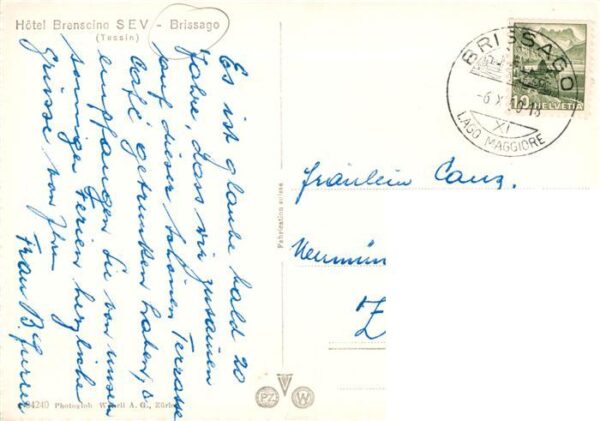 Hôtel Brenscino SEV - Brissago
(Tessin)
Es ist glaube bald 20
Jahre, dass wir zusammen
auf dieser schönen Terrasse
Café getrunken haben, &
empfangen Sie von unsern
sonnigen Ferien herzliche
Grüsse von Ihrer
Frau B.
Fabrication suisse
Photoglob A. G., Zürich
PZ W
BRISSAGO
-6 X
XI
LAGO MAGGIORE
10 HELVETIA
Fräulein Canz.
Neumün
Z